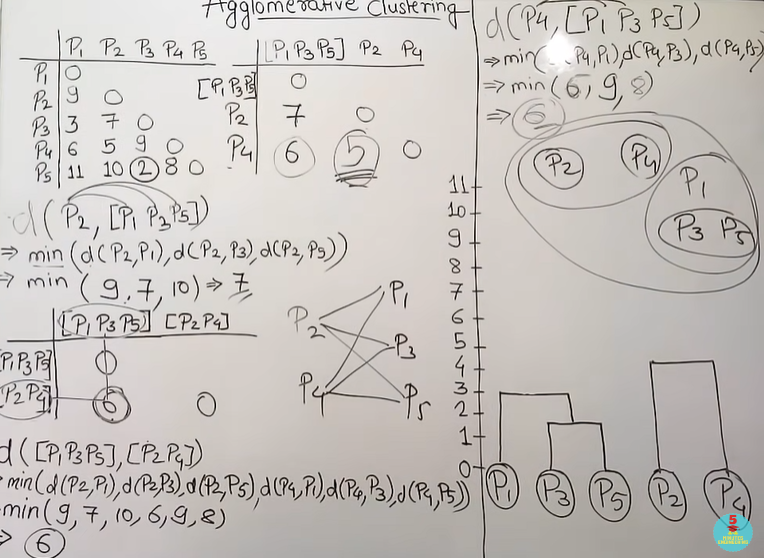 Agglomerative Clustering
P1 P2 P3 P4 P5
P1 0
P2 9 0
P3 3 7 0
P4 6 5 9 0
P5 11 10 2 8 0
[P1 P3 P5] P2 P4
[P1 P3 P5] 0
P2 7 0
P4 6 5 0
d(P2, [P1 P3 P5])
⇒ min(d(P2,P1), d(P2,P3), d(P2,P5))
⇒ min (9, 7, 10) ⇒ 7
[P1 P3 P5] [P2 P4]
[P1 P3 P5] 0
[P2 P4] 6 0
P2 P4 P1 P3 P5
d([P1 P3 P5], [P2 P4])
min(d(P2,P1), d(P2,P3), d(P2,P5), d(P4,P1), d(P4,P3), d(P4,P5))
min(9, 7, 10, 6, 9, 8)
⇒ 6
d(P4, [P1 P3 P5])
⇒ min( P4,P1), d(P4,P3), d(P4,P5)
⇒ min (6, 9, 8)
⇒ 6
P2 P4 P1
P3 P5
11
10
9
8
7
6
5
4
3
2
1
0
P1 P3 P5 P2 P4
5
MINUTES
ENGINEERING